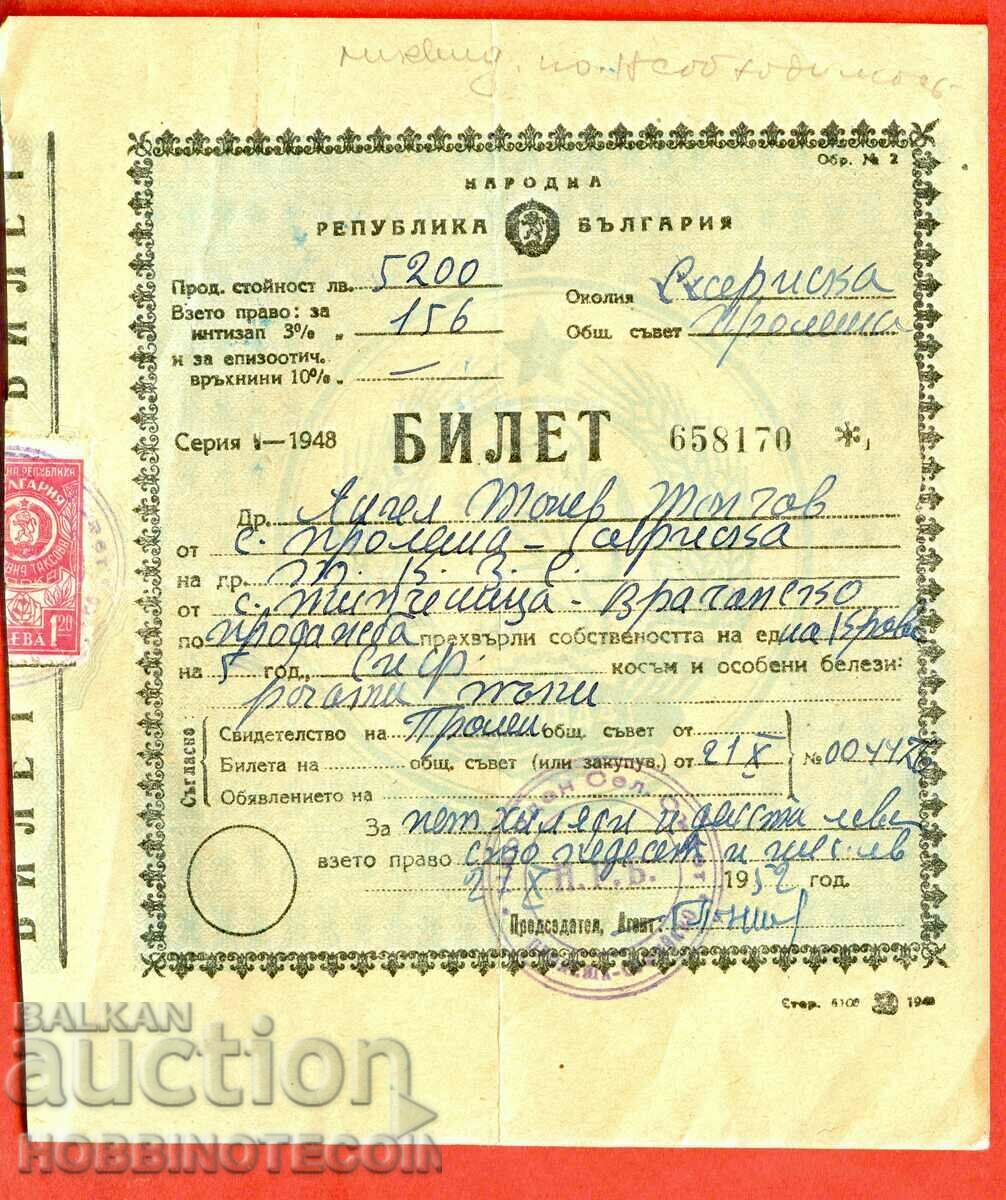 по
Обр. № 2
НАРОДНА
РЕПУБЛИКА БЪЛГАРИЯ
Прод. стойност лв. 5200
Околия
Взето право: за
интизап 3% „ 156
Общ. съвет Пролеша
и за епизоотич.
връхнини 10% „ —
Серия I—1948 БИЛЕТ 658170 *
Др. Ангел Точев
от с. Пролеша -
на др. Т. К. З. С.
от с. Типченица - Врачанско
по продажба прехвърли собствеността на една крава
на 5 год., сив косъм и особени белези:
рогати
Съгласно
Свидетелство на Пролеш общ. съвет от
Билета на общ. съвет (или закупув.) от 21 X № 00447
Обявлението на
За пет хиляди и двеста лева
взето право сто педесет и шест лв
21 X 1952 год.
Председател, Агент:
Н.Р.Б.
Стер. 1948
БИЛЕТ
БИЛЕТ
НА РЕПУБЛИКА
БЪЛГАРИЯ
МАРКА
ЛЕВА 1.20
BALKAN
auction
HOBBINOTECOIN